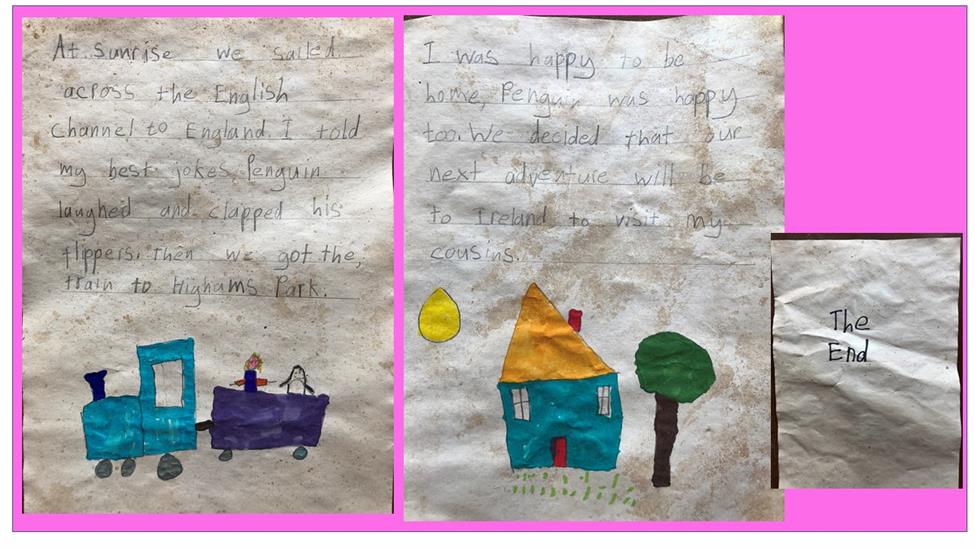 At sunrise we sailed
across the English
channel to England. I told
my best jokes. Penguin
laughed and clapped his
flippers. Then we got the,
train to Highams Park.
I was happy to be
home, Penguin was happy
too. We decided that our
next adventure will be
to Ireland to visit my
cousins.
The
End